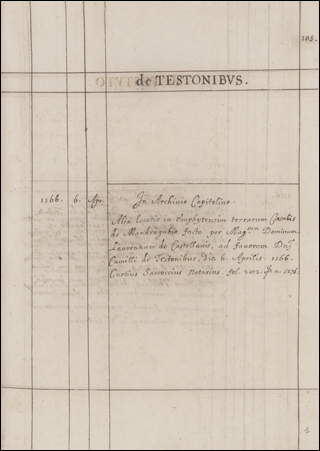 105.
de TESTONIBVS.
1566. 6. Apr. In Archivio Capitolino
Alia locatio in emphyteusim terrarum Casalis
de Mandragubio facta per Mag.cum Dominum
Laurentium de Castellanis, ad favorem Dnj
Camilli de Testonibus, die 6. Aprilis 1566.
Curtius Saccoccius Notarius. fol. 202.